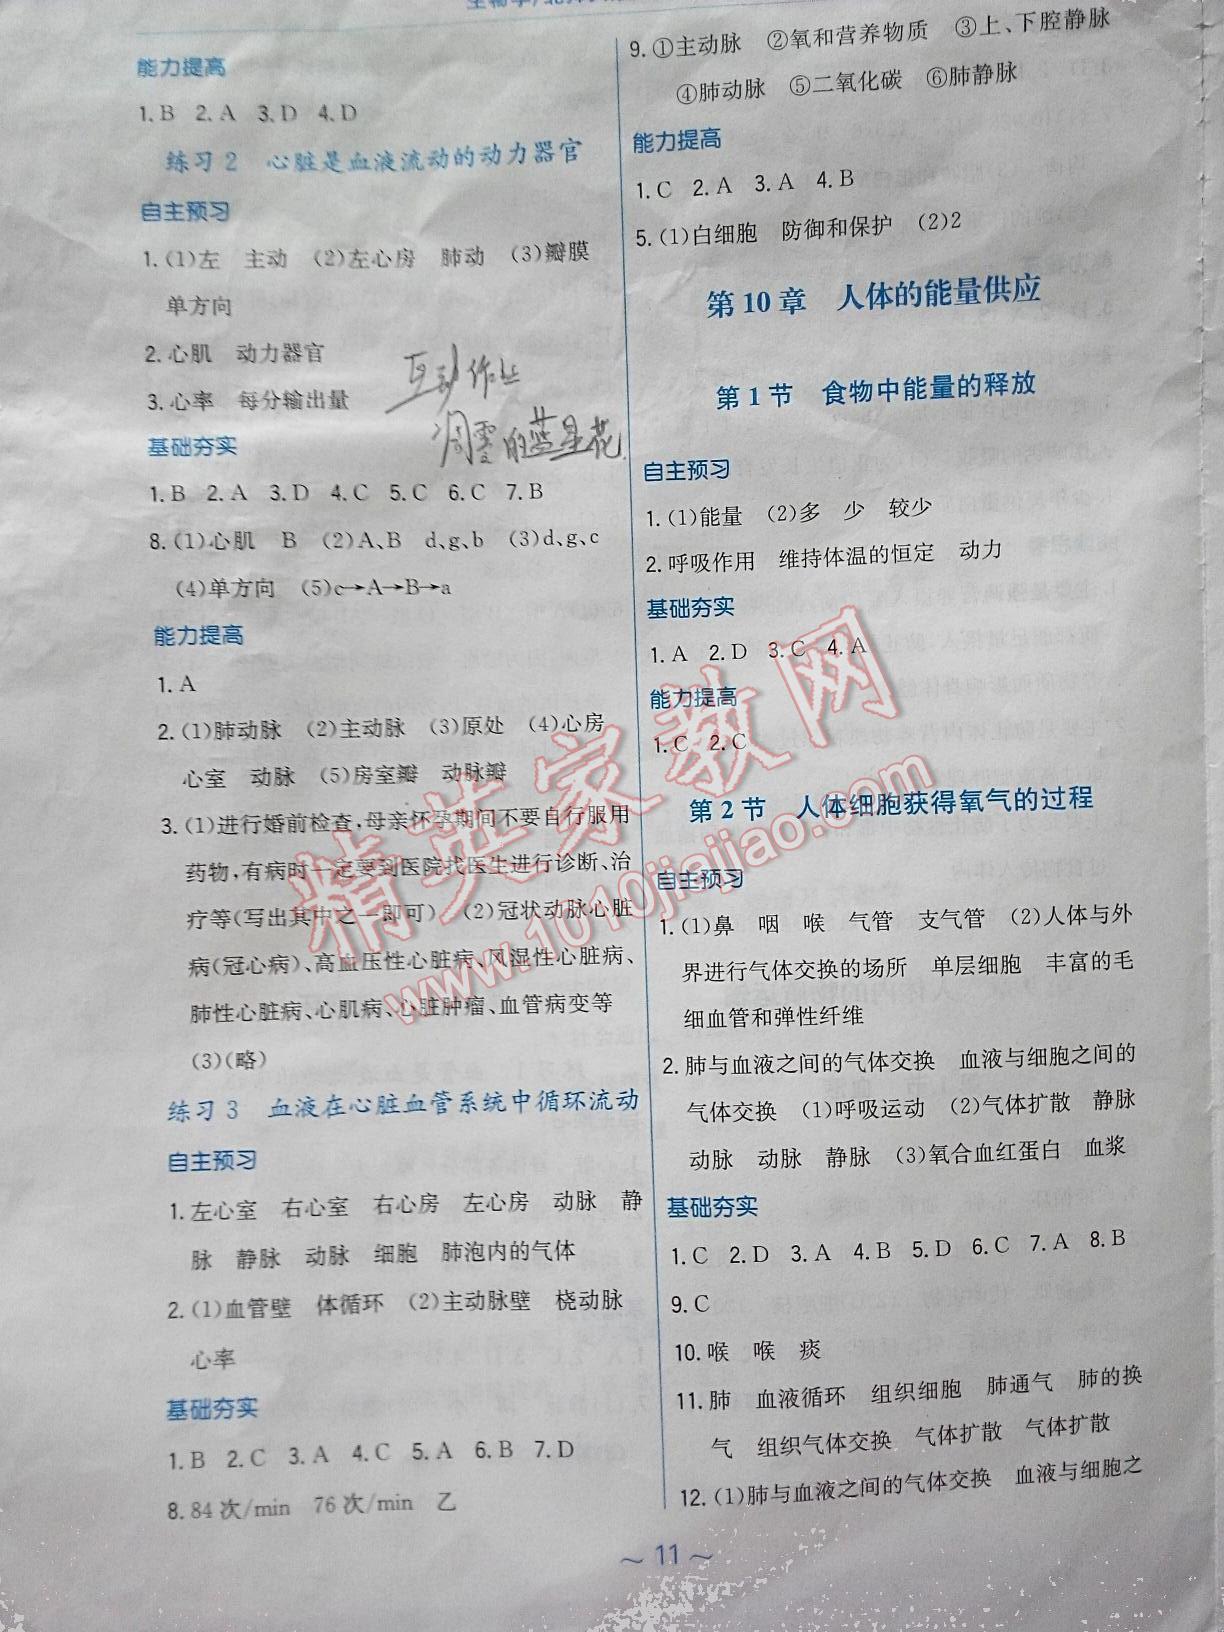 能力提高
1.B 2.A 3.D 4.D
练习2 心脏是血液流动的动力器官
自主预习
1.(1)左 主动 (2)左心房 肺动 (3)瓣膜
单方向
2.心肌 动力器官
3.心率 每分输出量
互动作业
凋零的蓝星花
基础夯实
1.B 2.A 3.D 4.C 5.C 6.C 7.B
8.(1)心肌 B (2)A、B d、g、b (3)d、g、c
(4)单方向 (5)c→A→B→a
能力提高
1.A
2.(1)肺动脉 (2)主动脉 (3)原处 (4)心房
心室 动脉 (5)房室瓣 动脉瓣
3.(1)进行婚前检查,母亲怀孕期间不要自行服用
药物,有病时一定要到医院找医生进行诊断、治
疗等(写出其中之一即可) (2)冠状动脉心脏
病(冠心病)、高血压性心脏病、风湿性心脏病、
肺性心脏病、心肌病、心脏肿瘤、血管病变等
(3)(略)
练习3 血液在心脏血管系统中循环流动
自主预习
1.左心室 右心室 右心房 左心房 动脉 静
脉 静脉 动脉 细胞 肺泡内的气体
2.(1)血管壁 体循环 (2)主动脉壁 桡动脉
心率
基础夯实
1.B 2.C 3.A 4.C 5.A 6.B 7.D
8.84次/min 76次/min 乙
9.①主动脉 ②氧和营养物质 ③上、下腔静脉
④肺动脉 ⑤二氧化碳 ⑥肺静脉
能力提高
1.C 2.A 3.A 4.B
5.(1)白细胞 防御和保护 (2)2
第10章 人体的能量供应
第1节 食物中能量的释放
自主预习
1.(1)能量 (2)多 少 较少
2.呼吸作用 维持体温的恒定 动力
基础夯实
1.A 2.D 3.C 4.A
能力提高
1.C 2.C
第2节 人体细胞获得氧气的过程
自主预习
1.(1)鼻 咽 喉 气管 支气管 (2)人体与外
界进行气体交换的场所 单层细胞 丰富的毛
细血管和弹性纤维
2.肺与血液之间的气体交换 血液与细胞之间的
气体交换 (1)呼吸运动 (2)气体扩散 静脉
动脉 动脉 静脉 (3)氧合血红蛋白 血浆
基础夯实
1.C 2.D 3.A 4.B 5.D 6.C 7.A 8.B
9.C
10.喉 喉 痰
11.肺 血液循环 组织细胞 肺通气 肺的换
气 组织气体交换 气体扩散 气体扩散
12.(1)肺与血液之间的气体交换 血液与细胞之
~ 11 ~
精英家教网
www.1010jiajiao.com